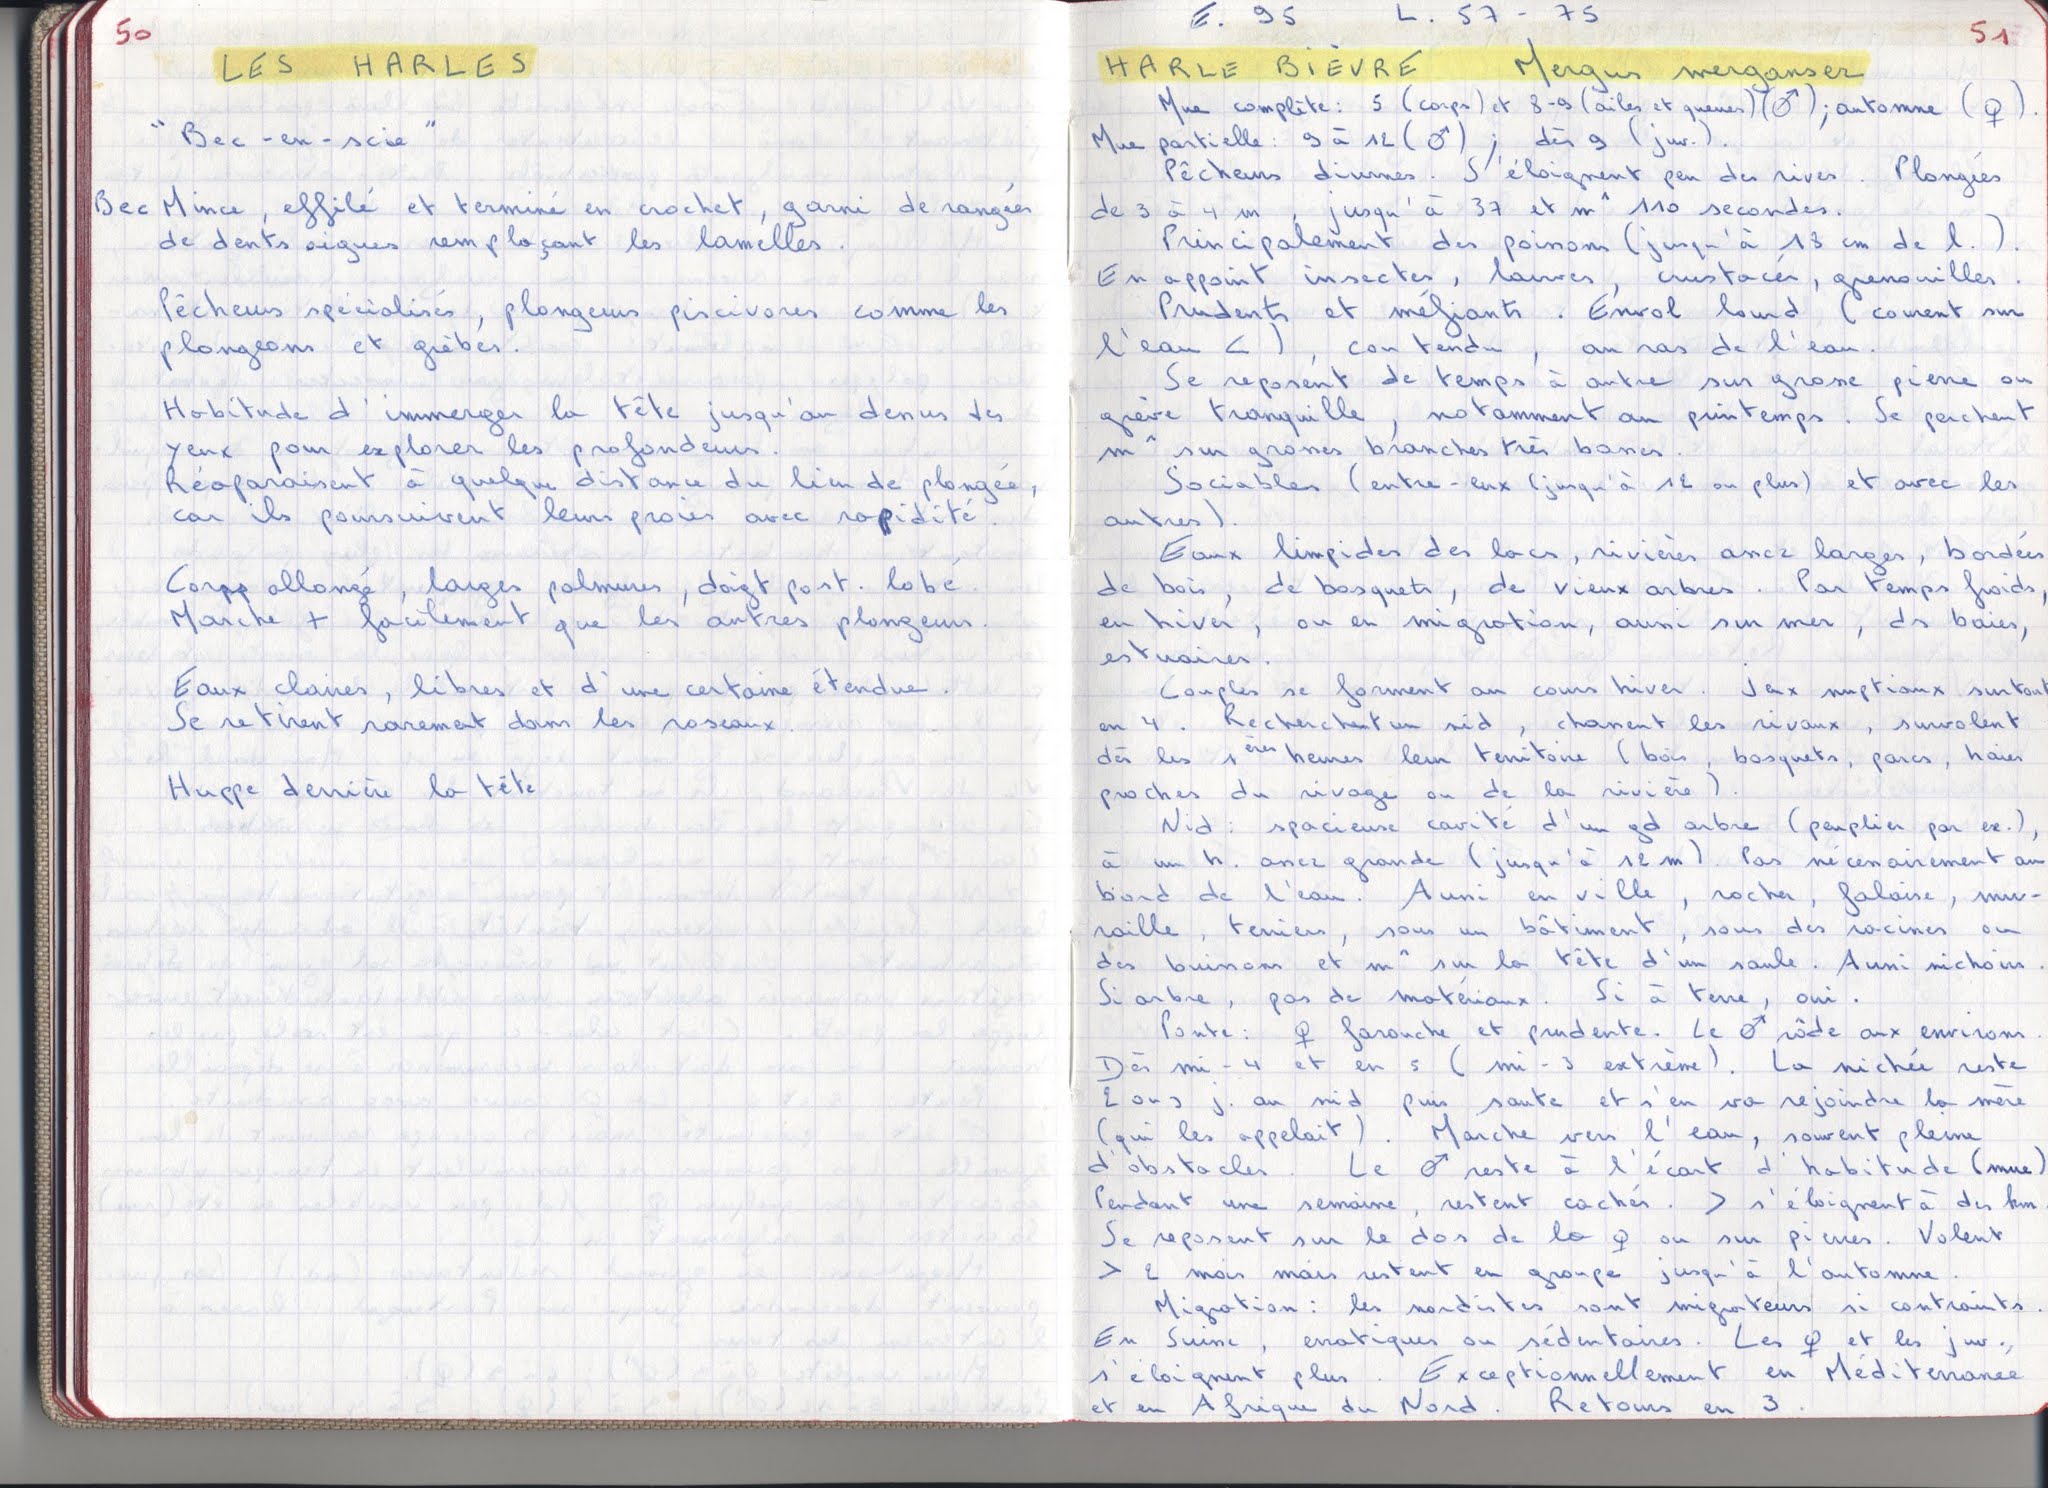 50
LES HARLES
"Bec-en-scie"
Bec Mince, effilé et terminé en crochet, garni de rangées
de dents aigues remplaçant les lamelles.
Pêcheurs spécialisés, plongeurs piscivores comme les
plongeons et grèbes.
Habitude d'immerger la tête jusqu'au dessus des
yeux pour explorer les profondeurs.
Réaparaisent à quelque distance du lieu de plongée,
car ils poursuivent leurs proies avec rapidité.
Corps allongé, larges palmures, doigt post. lobé.
Marche + facilement que les autres plongeurs.
Eaux claires, libres et d'une certaine étendue.
Se retirent rarement dans les roseaux.
Huppe derrière la tête
E. 95 L. 57-75
51
HARLE BIÈVRE Mergus merganser
Mue complète: 5 (corps) et 8-9 (ailes et queues) (♂); automne (♀).
Mue partielle: 9 à 12 (♂); dès 9 (juv.).
Pêcheurs diurnes. S'éloignent peu des rives. Plongées
de 3 à 4 m, jusqu'à 37 et m^ 110 secondes.
Principalement des poissons (jusqu'à 18 cm de l.).
En appoint insectes, larves, crustacés, grenouilles.
Prudents et méfiants. Envol lourd (courent sur
l'eau <), cou tendu, au ras de l'eau.
Se reposent de temps à autre sur grosse pierre ou
grève tranquille, notamment au printemps. Se perchent
m^ sur grosses branches très basses.
Sociables (entre-eux (jusqu'à 12 ou plus) et avec les
autres).
Eaux limpides des lacs, rivières assez larges, bordées
de bois, de bosquets, de vieux arbres. Par temps froids,
en hiver, ou en migration, aussi sur mer, ds baies,
estuaires.
Couples se forment au cours hiver. Jeux nuptiaux surtout
en 4. Recherchent un nid, chassent les rivaux, survolent
dès les 1ères heures leur territoire (bois, bosquets, parcs, haies
proches du rivage ou de la rivière).
Nid: spacieuse cavité d'un gd arbre (peuplier par ex.),
à un h. assez grande (jusqu'à 12 m). Pas nécessairement au
bord de l'eau. Aussi en ville, rocher, falaise, mur-
raille, terriers, sous un bâtiment, sous des racines ou
des buissons et m^ sur la tête d'un saule. Aussi nichoirs.
Si arbre, pas de matériaux. Si à terre, oui.
Ponte: ♀ farouche et prudente. Le ♂ rôde aux environs.
Dès mi-4 et en 5 (mi-3 extrême). La nichée reste
2 ou 3 j. au nid puis saute et s'en va rejoindre la mère
(qui les appelait). Marche vers l'eau, souvent pleine
d'obstacles. Le ♂ reste à l'écart d'habitude (mue)
Pendant une semaine, restent cachés. > s'éloignent à des km.
Se reposent sur le dos de la ♀ ou sur pierres. Volent
> 2 mois mais restent en groupe jusqu'à l'automne.
Migration: les nordistes sont migrateurs si contraints.
En Suisse, erratiques ou sédentaires. Les ♀ et les juv.,
s'éloignent plus. Exceptionnellement en Méditerranée
et en Afrique du Nord. Retours en 3.